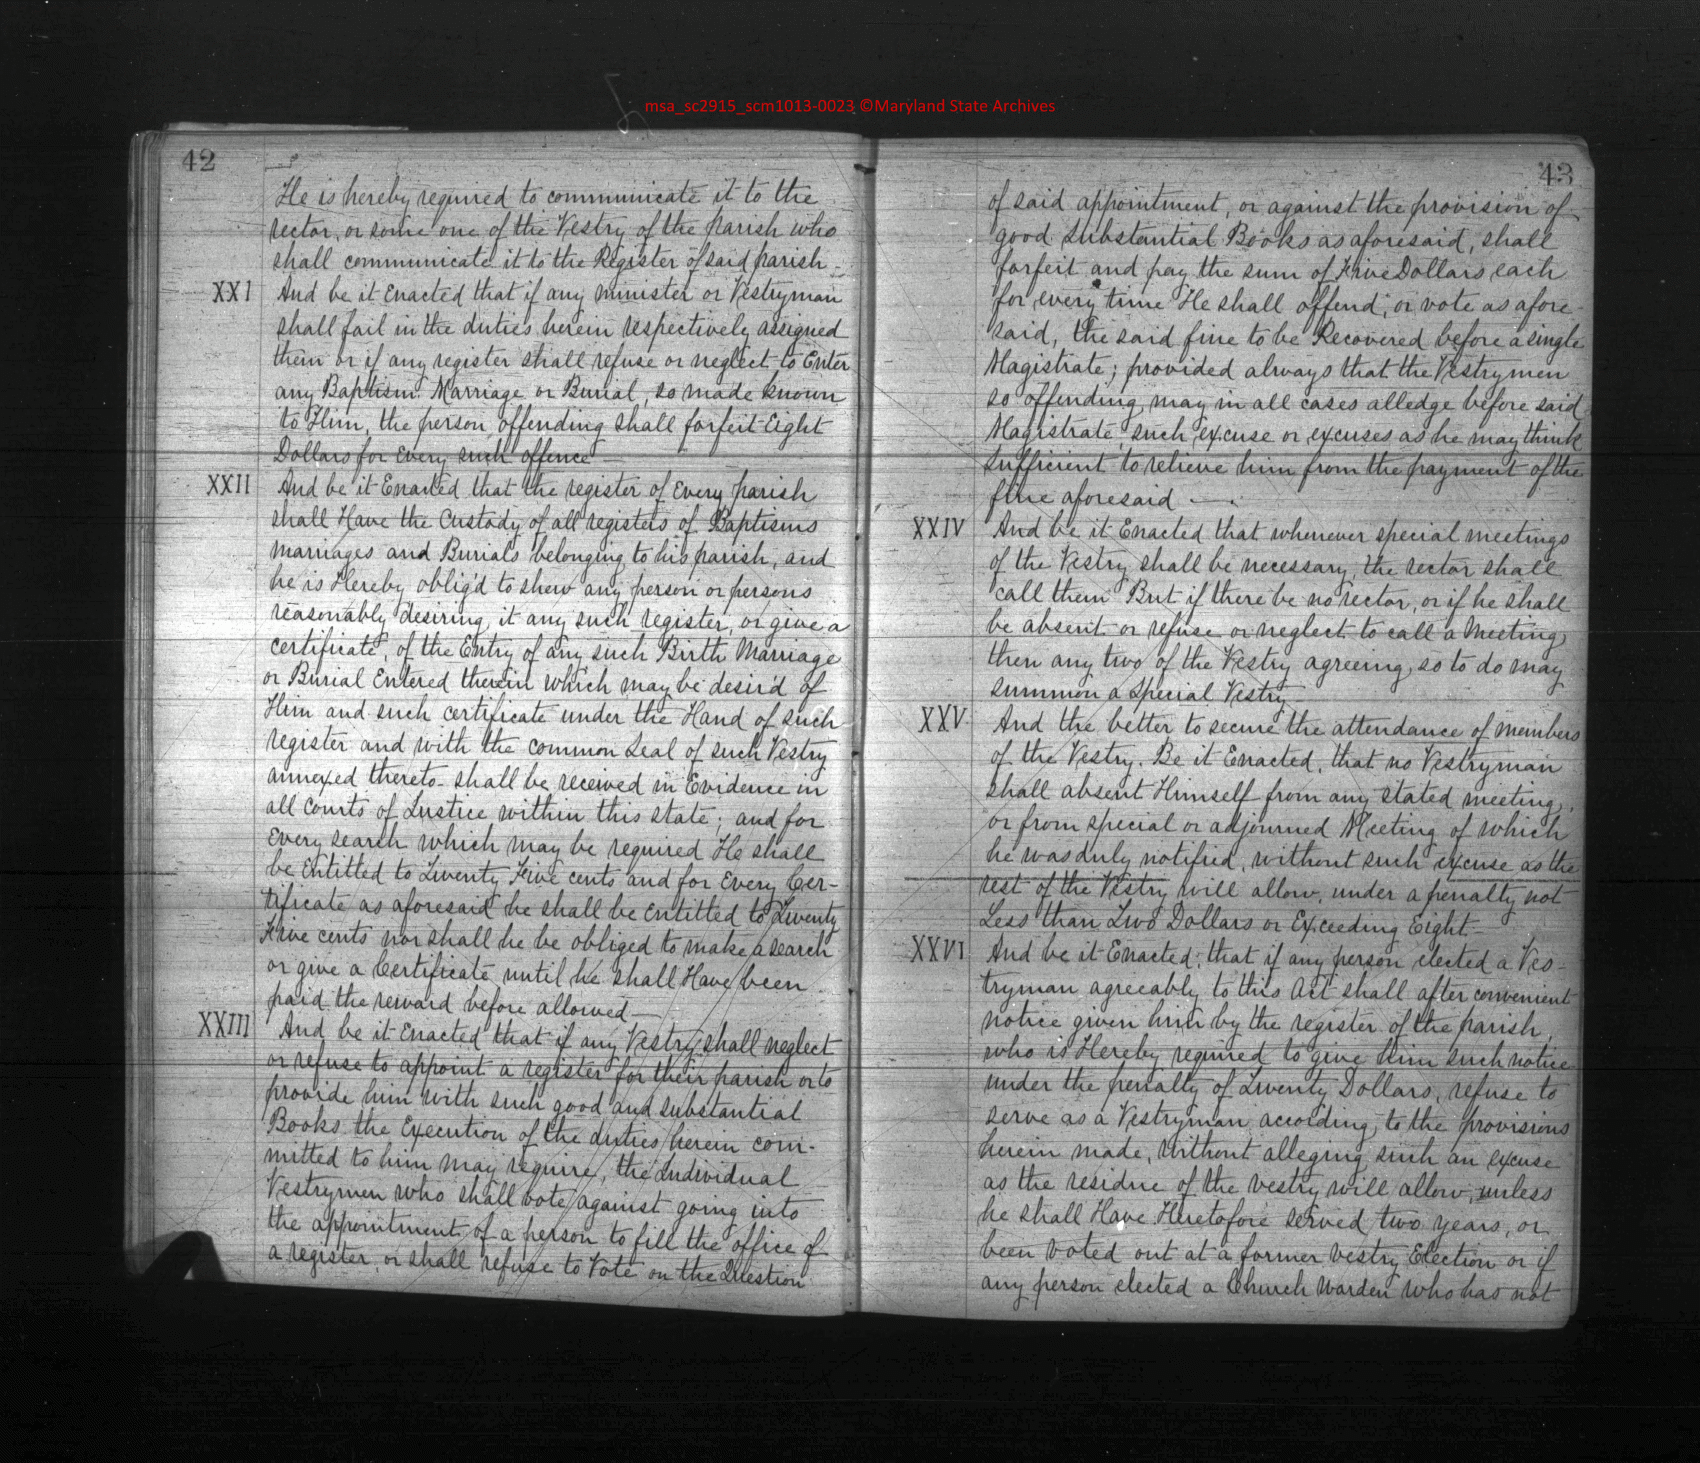 msa_sc2915_scm1013-0023 ©Maryland State Archives
42
He is hereby required to communicate it to the
rector, or some one of the Vestry of the parish who
shall communicate it to the Register of said parish -
XXI And be it Enacted that if any minister or Vestryman
shall fail in the duties herein respectively assigned
them or if any register shall refuse or neglect to Enter
any Baptism Marriage or Burial, so made known
to Him, the person offending shall forfeit Eight
Dollars for Every such offence —
XXII And be it Enacted that the register of Every parish
shall Have the Custody of all registers of Baptisms
marriages and Burials belonging to his parish, and
he is Hereby oblig'd to shew any person or persons
reasonably desiring it any such register, or give a
certificate, of the Entry of any such Birth Marriage
or Burial Entered therein which may be desir'd of
Him and such certificate under the Hand of such
register and with the common Seal of such Vestry
annexed thereto - shall be received in Evidence in
all Courts of Justice within this state; and for
Every search which may be required He shall
be Entitled to Twenty Five cents and for Every Cer-
tificate as aforesaid he shall be Entitled to Twenty
Five cents nor shall he be obliged to make a search
or give a Certificate until he shall Have been
paid the reward before allowed —
XXIII And be it Enacted that if any Vestry shall neglect
or refuse to appoint a register for their parish or to
provide him with such good and substantial
Books the Execution of the duties herein com-
mitted to him may require, the individual
Vestrymen who shall vote against going into
the appointment of a person to fill the office of
a register, or shall refuse to Vote on the Question
43
of said appointment, or against the provision of
good substantial Books as aforesaid, shall
forfeit and pay the sum of Five Dollars each
for every time He shall offend, or vote as afore-
said, the said fine to be Recovered before a single
Magistrate; provided always that the Vestrymen
so offending may in all cases alledge before said
Magistrate such excuse or excuses as he may think
sufficient to relieve him from the payment of the
fine aforesaid —.
XXIV And be it Enacted that whenever special meetings
of the Vestry shall be necessary, the rector shall
call them But if there be no rector, or if he shall
be absent or refuse or neglect to call a Meeting,
then any two of the Vestry agreeing so to do may
summon a special Vestry
XXV And the better to secure the attendance of members
of the Vestry. Be it Enacted, that no Vestryman
shall absent Himself from any stated meeting,
or from special or adjourned Meeting of which
he was duly notified, without such excuse as the
rest of the Vestry will allow, under a penalty not
Less than Two Dollars or Exceeding Eight —
XXVI And be it Enacted, that if any person elected a Ves-
tryman agreeably to this Act shall after convenient
notice given him by the register of the parish,
who is Hereby required to give him such notice
under the penalty of Twenty Dollars, refuse to
serve as a Vestryman according to the provisions
herein made, without alleging such an excuse
as the residue of the vestry will allow, unless
he shall Have Heretofore served two years, or
been voted out at a former vestry Election or if
any person elected a Church Warden who has not